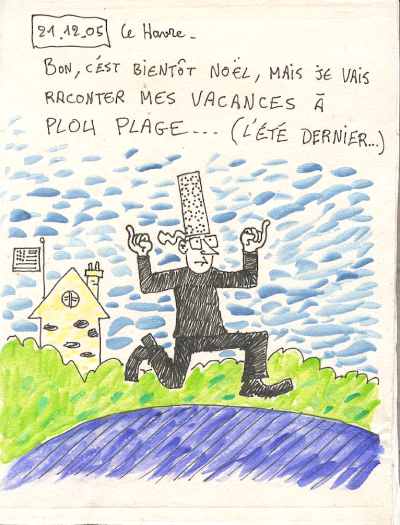 21.12.05 Le Havre_
BON, C'EST BIENTÔT NOËL, MAIS JE VAIS
RACONTER MES VACANCES À
PLOUM PLAGE... (L'ÉTÉ DERNIER...)